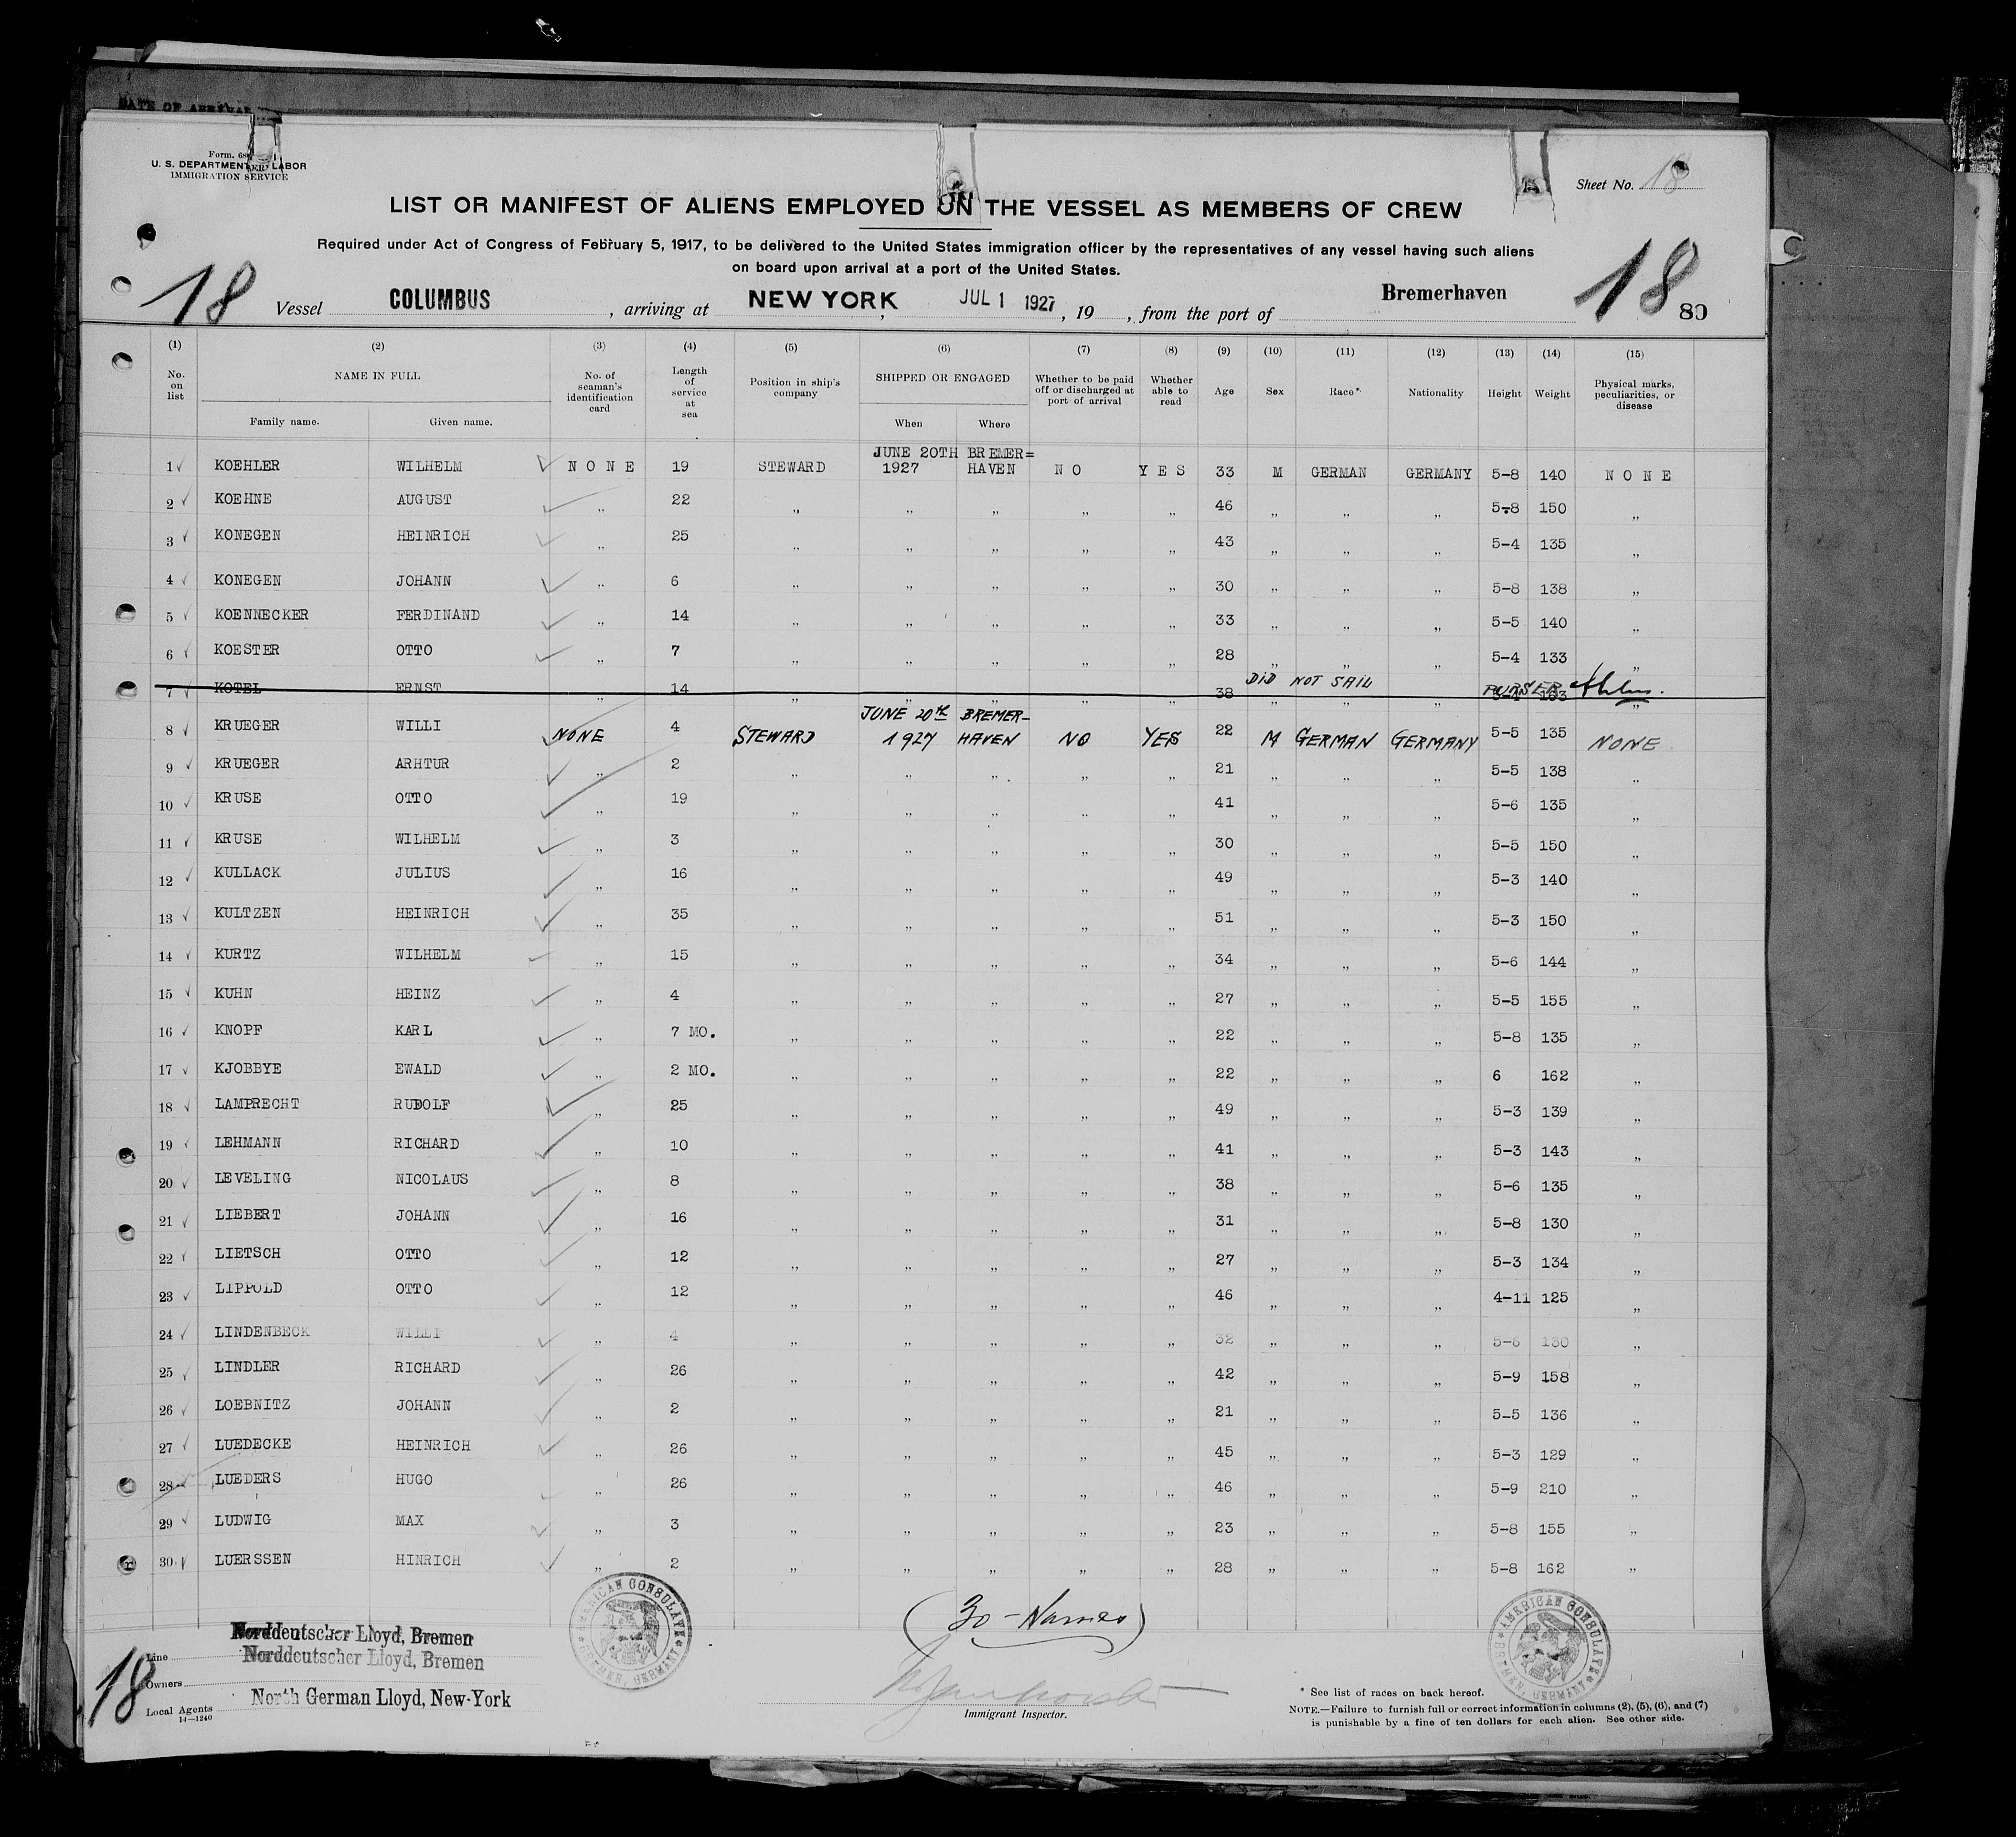 DATE OF ARRIVAL
Form. 68
U. S. DEPARTMENT LABOR
IMMIGRATION SERVICE
Sheet No. 18
LIST OR MANIFEST OF ALIENS EMPLOYED ON THE VESSEL AS MEMBERS OF CREW
Required under Act of Congress of February 5, 1917, to be delivered to the United States immigration officer by the representatives of any vessel having such aliens
on board upon arrival at a port of the United States.
18 Vessel COLUMBUS, arriving at NEW YORK, JUL 1 1927, 19, from the port of Bremerhaven 18 80
(1) (2) (3) (4) (5) (6) (7) (8) (9) (10) (11) (12) (13) (14) (15)
No. on list NAME IN FULL Family name. Given name. No. of seaman's identification card Length of service at sea Position in ship's company SHIPPED OR ENGAGED When Where Whether to be paid off or discharged at port of arrival Whether able to read Age Sex Race* Nationality Height Weight Physical marks, peculiarities, or disease
JUNE 20TH BREMER=
1 KOEHLER WILHELM NONE 19 STEWARD 1927 HAVEN NO YES 33 M GERMAN GERMANY 5-8 140 NONE
2 KOEHNE AUGUST " 22 " " " " " 46 " " " 5-8 150 "
3 KONEGEN HEINRICH " 25 " " " " " 43 " " " 5-4 135 "
4 KONEGEN JOHANN " 6 " " " " " 30 " " " 5-8 138 "
5 KOENNECKER FERDINAND " 14 " " " " " 33 " " " 5-5 140 "
6 KOESTER OTTO " 7 " " " " " 28 " " " 5-4 133 "
7 KOTEL ERNST " 14 " " " " " 38 DID NOT SAIL PURSER 163 "
JUNE 20TH BREMER-
8 KRUEGER WILLI NONE 4 STEWARD 1927 HAVEN NO YES 22 M GERMAN GERMANY 5-5 135 NONE
9 KRUEGER ARHTUR " 2 " " " " " 21 " " " 5-5 138 "
10 KRUSE OTTO " 19 " " " " " 41 " " " 5-6 135 "
11 KRUSE WILHELM " 3 " " " " " 30 " " " 5-5 150 "
12 KULLACK JULIUS " 16 " " " " " 49 " " " 5-3 140 "
13 KULTZEN HEINRICH " 35 " " " " " 51 " " " 5-3 150 "
14 KURTZ WILHELM " 15 " " " " " 34 " " " 5-6 144 "
15 KUHN HEINZ " 4 " " " " " 27 " " " 5-5 155 "
16 KNOPF KARL " 7 MO. " " " " " 22 " " " 5-8 135 "
17 KJOBBYE EWALD " 2 MO. " " " " " 22 " " " 6 162 "
18 LAMPRECHT RUDOLF " 25 " " " " " 49 " " " 5-3 139 "
19 LEHMANN RICHARD " 10 " " " " " 41 " " " 5-3 143 "
20 LEVELING NICOLAUS " 8 " " " " " 38 " " " 5-6 135 "
21 LIEBERT JOHANN " 16 " " " " " 31 " " " 5-8 130 "
22 LIETSCH OTTO " 12 " " " " " 27 " " " 5-3 134 "
23 LIPPOLD OTTO " 12 " " " " " 46 " " " 4-11 125 "
24 LINDENBECK WILLI " 4 " " " " " 32 " " " 5-6 130 "
25 LINDLER RICHARD " 26 " " " " " 42 " " " 5-9 158 "
26 LOEBNITZ JOHANN " 2 " " " " " 21 " " " 5-5 136 "
27 LUEDECKE HEINRICH " 26 " " " " " 45 " " " 5-3 129 "
28 LUEDERS HUGO " 26 " " " " " 46 " " " 5-9 210 "
29 LUDWIG MAX " 3 " " " " " 23 " " " 5-8 155 "
30 LUERSSEN HINRICH " 2 " " " " " 28 " " " 5-8 162 "
(30 - Names)
AMERICAN CONSULATE BREMEN, GERMANY
AMERICAN CONSULATE BREMEN, GERMANY
Norddeutscher Lloyd, Bremen
18 Line Norddeutscher Lloyd, Bremen
Owners
Local Agents North German Lloyd, New-York
14-1240
Immigrant Inspector.
* See list of races on back hereof.
NOTE.—Failure to furnish full or correct information in columns (2), (5), (6), and (7)
is punishable by a fine of ten dollars for each alien. See other side.